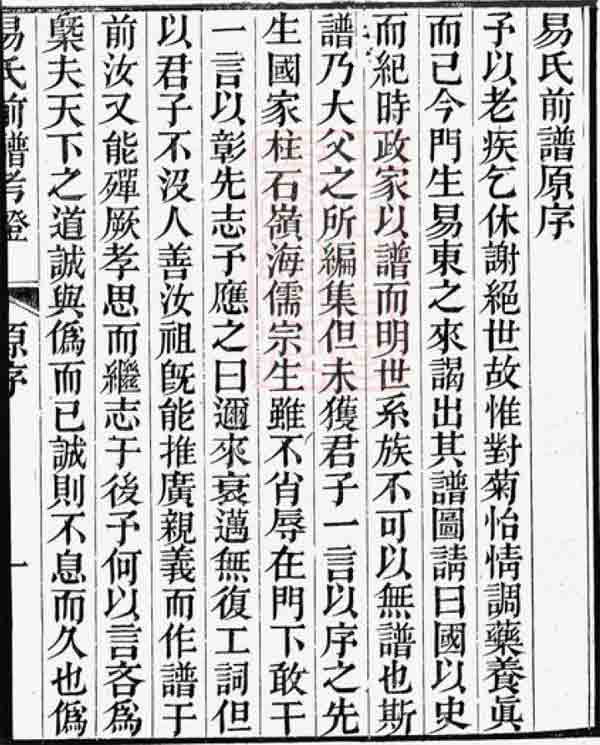 易氏前譜原序
予以老疾乞休謝絕世故惟對菊怡情調藥養眞
而已今門生易東之來謁出其譜圖請曰國以史
而紀時政家以譜而明世系族不可以無譜也斯
譜乃大父之所編集但未獲君子一言以序之先
生國家柱石嶺海儒宗生雖不肖辱在門下敢干
一言以彰先志予應之曰邇來衰邁無復工詞但
以君子不沒人善汝祖旣能推廣親義而作譜于
前汝又能殫厥孝思而繼志于後予何以言吝爲
槩夫天下之道誠與僞而已誠則不息而久也僞
易氏前譜考證 原序 一